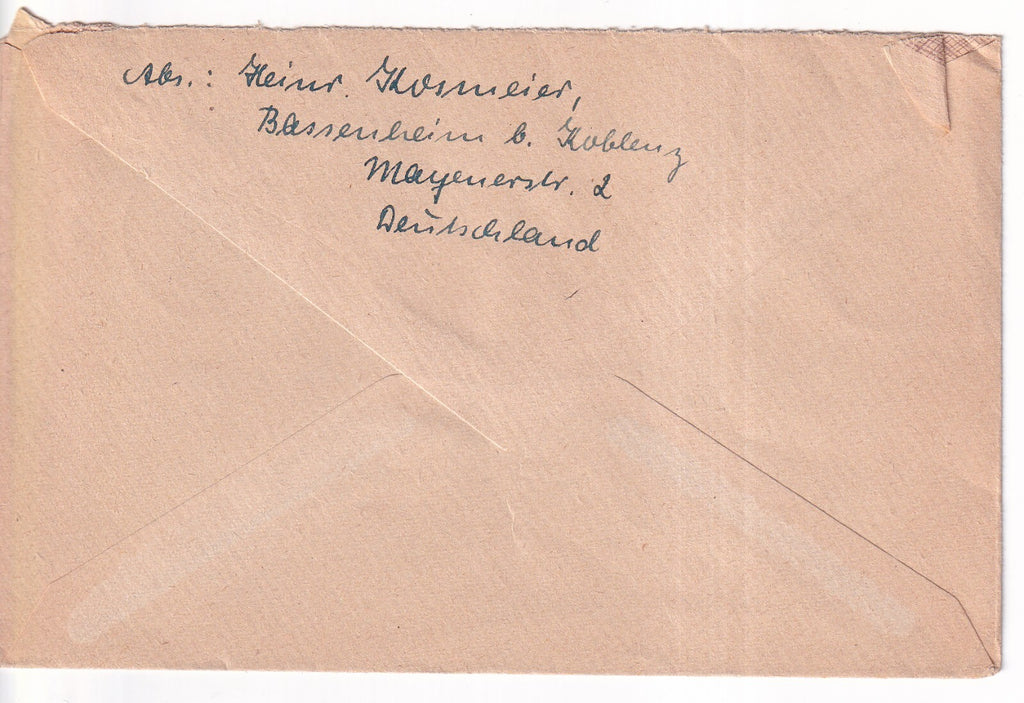 Abs.: Heinr. Kosmeier,
Bassenheim b. Koblenz
Mayenerstr. 2
Deutschland